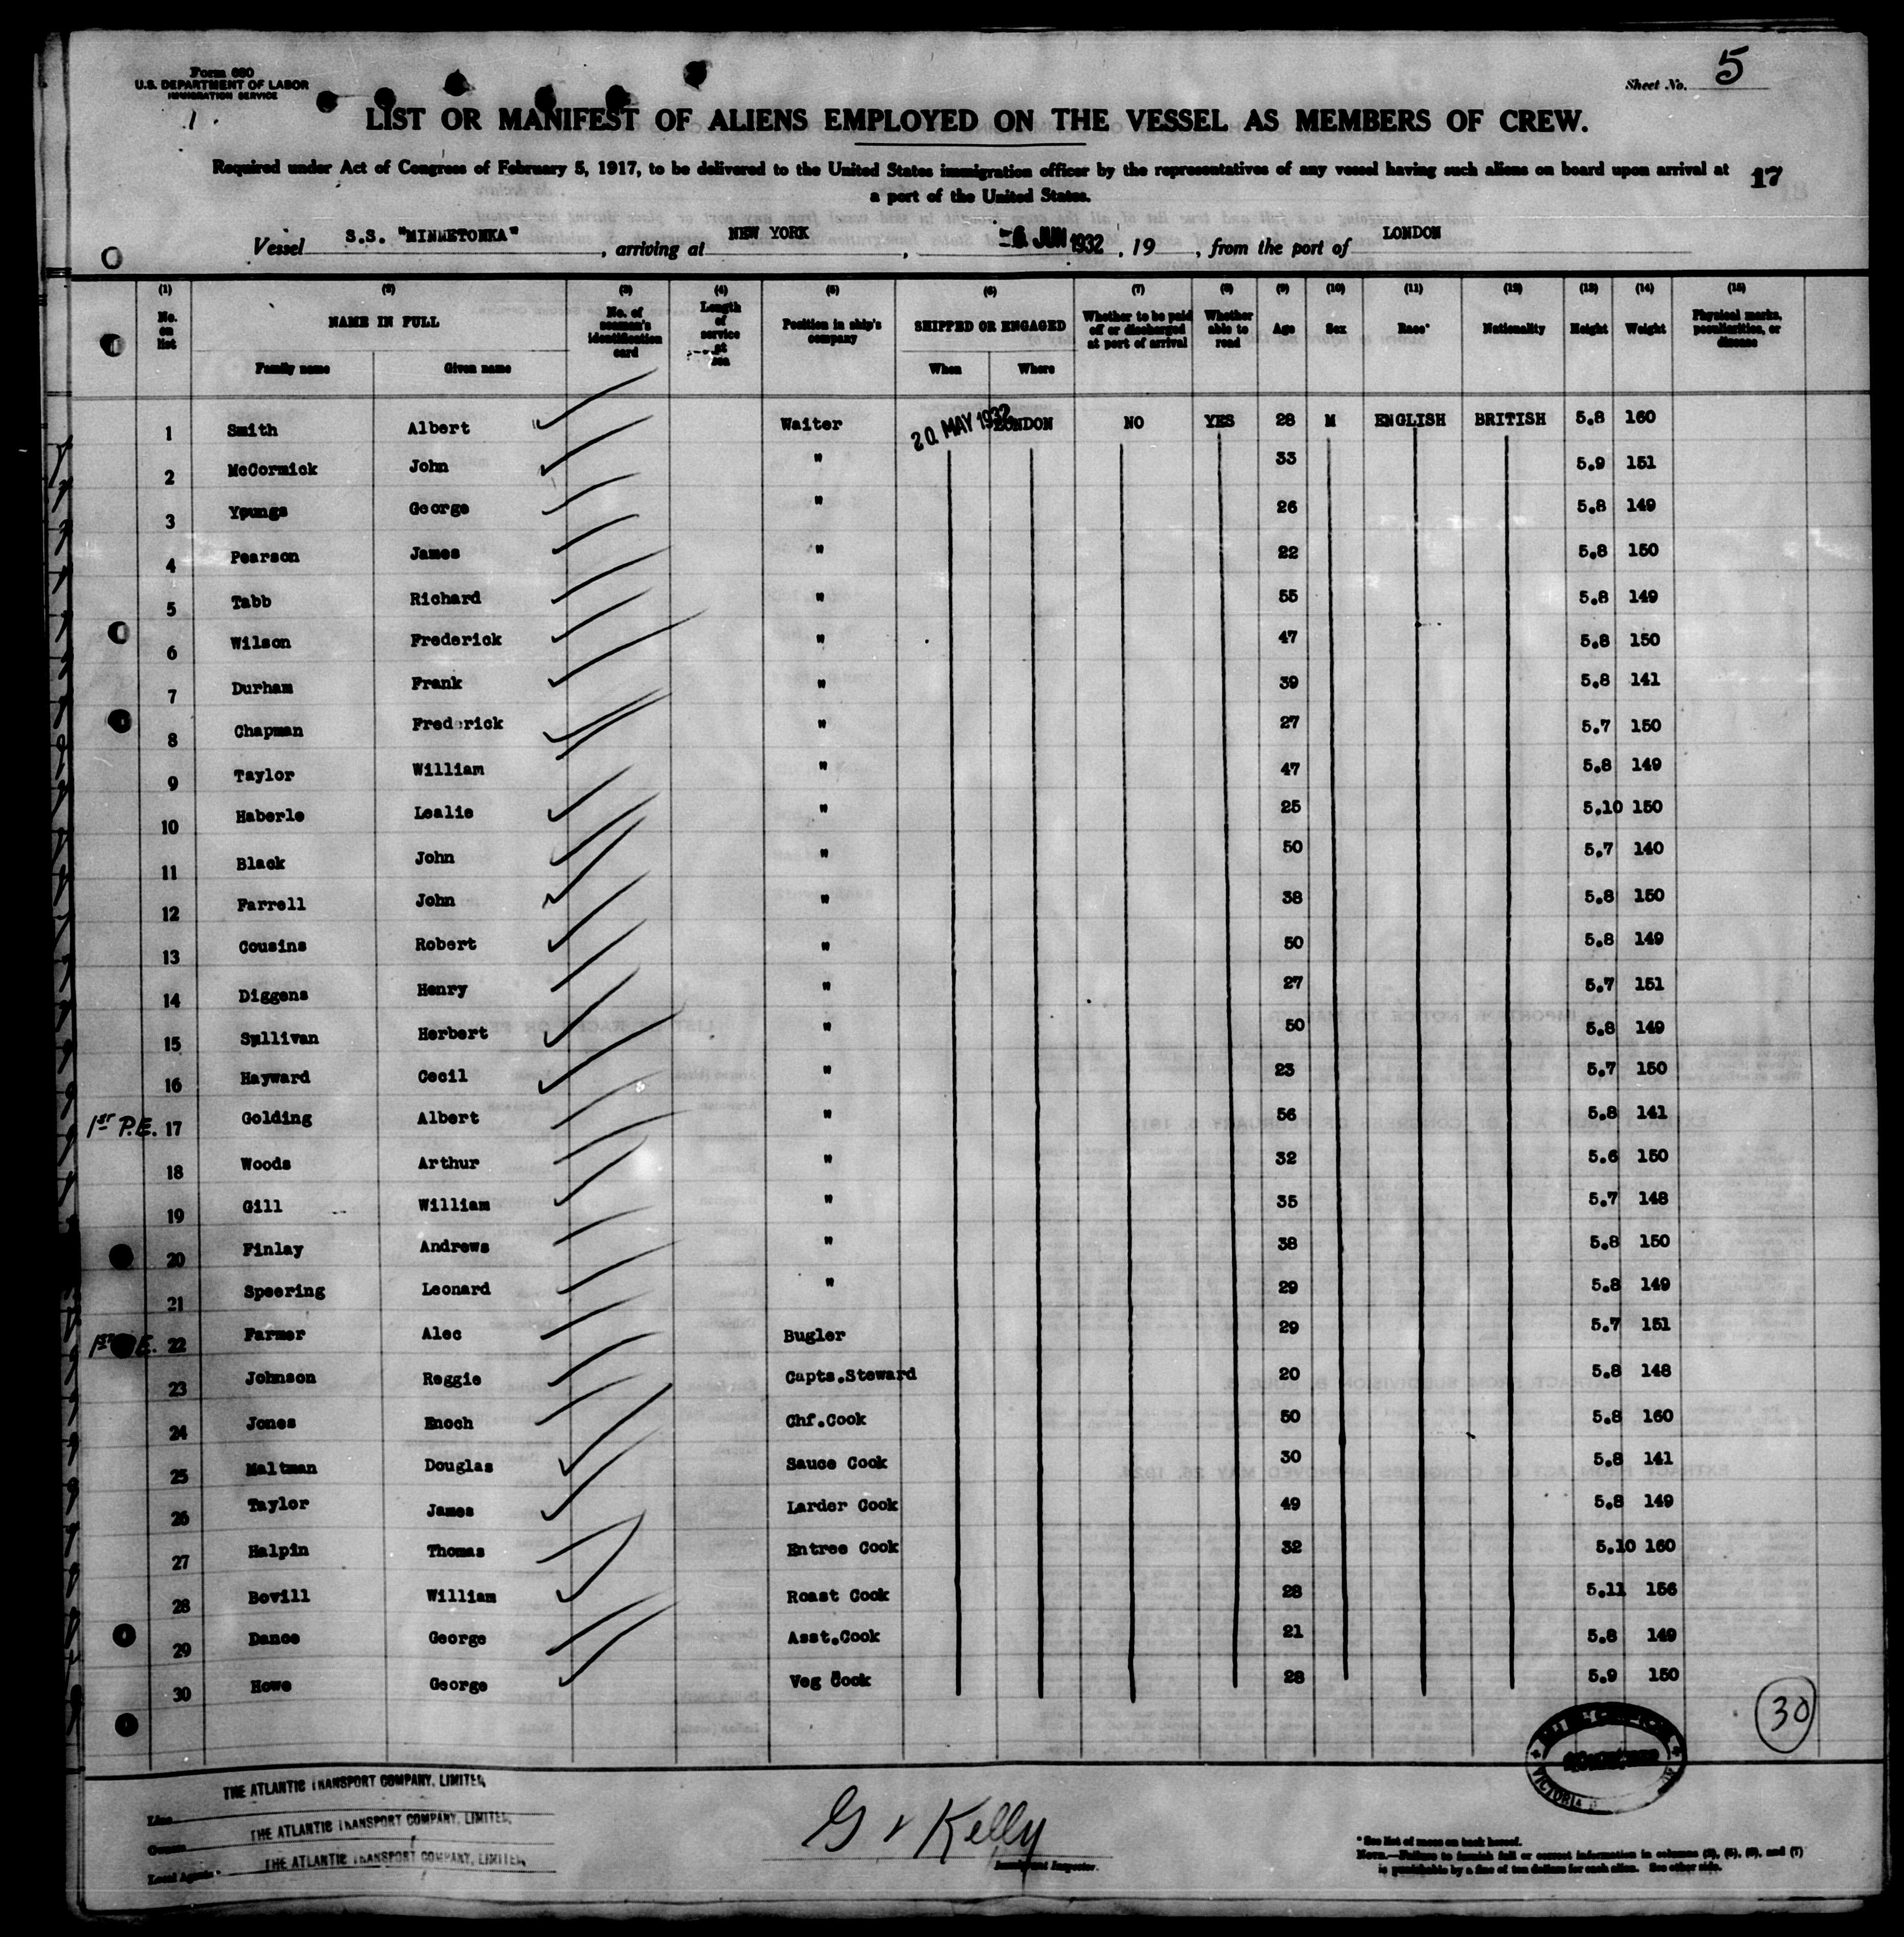 Form 680
U.S. DEPARTMENT OF LABOR
IMMIGRATION SERVICE
Sheet No. 5
LIST OR MANIFEST OF ALIENS EMPLOYED ON THE VESSEL AS MEMBERS OF CREW.
Required under Act of Congress of February 5, 1917, to be delivered to the United States immigration officer by the representatives of any vessel having such aliens on board upon arrival at
a port of the United States.
17
Vessel S.S. "MINNETONKA", arriving at NEW YORK, 6 JUN 1932, 19 , from the port of LONDON
(1) (2) (3) (4) (5) (6) (7) (8) (9) (10) (11) (12) (13) (14) (15)
No. on list NAME IN FULL Family name Given name No. of seaman's identification card Length of service at sea Position in ship's company SHIPPED OR ENGAGED When Where Whether to be paid off or discharged at port of arrival Whether able to read Age Sex Race* Nationality Height Weight Physical marks, peculiarities, or disease
1 Smith Albert Waiter 20 MAY 1932 LONDON NO YES 28 M ENGLISH BRITISH 5.8 160
2 McCormick John " 33 5.9 151
3 Youngs George " 26 5.8 149
4 Pearson James " 22 5.8 150
5 Tabb Richard " 55 5.8 149
6 Wilson Frederick " 47 5.8 150
7 Durham Frank " 39 5.8 141
8 Chapman Frederick " 27 5.7 150
9 Taylor William " 47 5.8 149
10 Haberle Leslie " 25 5.10 150
11 Black John " 50 5.7 140
12 Farrell John " 38 5.8 150
13 Cousins Robert " 50 5.8 149
14 Diggens Henry " 27 5.7 151
15 Sullivan Herbert " 50 5.8 149
16 Hayward Cecil " 23 5.7 150
1st P.E. 17 Golding Albert " 56 5.8 141
18 Woods Arthur " 32 5.6 150
19 Gill William " 35 5.7 148
20 Finlay Andrews " 38 5.8 150
21 Speering Leonard " 29 5.8 149
1st E. 22 Farmer Alec Bugler 29 5.7 151
23 Johnson Reggie Capts.Steward 20 5.8 148
24 Jones Enoch Chf.Cook 50 5.8 160
25 Maltman Douglas Sauce Cook 30 5.8 141
26 Taylor James Larder Cook 49 5.8 149
27 Halpin Thomas Entree Cook 32 5.10 160
28 Bovill William Roast Cook 28 5.11 156
29 Dance George Asst.Cook 21 5.8 149
30 Howe George Veg Cook 28 5.9 150
30
VICTORIA
Line THE ATLANTIC TRANSPORT COMPANY, LIMITED,
Owners THE ATLANTIC TRANSPORT COMPANY, LIMITED,
Local Agents THE ATLANTIC TRANSPORT COMPANY, LIMITED,
G v Kelly
Immigrant Inspector.
* See list of races on back hereof.
NOTE.—Failure to furnish full or correct information in columns (2), (5), (6), and (7)
is punishable by a fine of ten dollars for each alien. See other side.